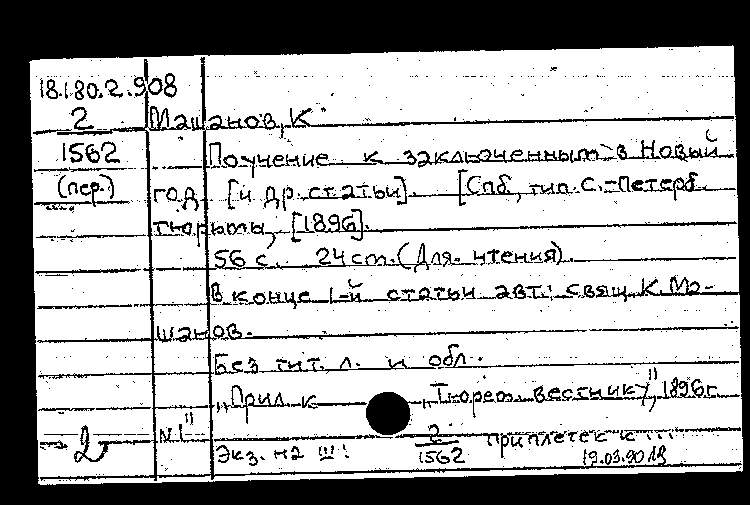 18.180.2.908
2
1562
(пер.)
Машанов, К
Поучение к заключенным в Новый
год [и др. статьи]. [Спб, тип. С.-Петерб.
тюрьмы, [1896].
56 с. 24 cm. (Для чтения).
В конце 1-й статьи авт.: свящ. К. Ма-
шанов.
Без тит. л. и обл.
"Прил. к "Тюрем. вестнику", 1896 г.
N1"
2
Экз. на Ш! 2/1562 приплетен к
19.03.90